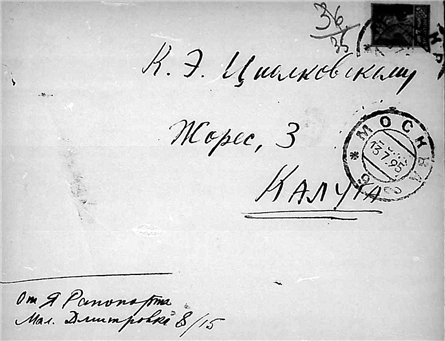 36
35
К. Э. Циолковскому
Жорес, 3
МОСКВА
13.7.
Калуга
От Я Рапопорта
Мал. Дмитровка 8/15